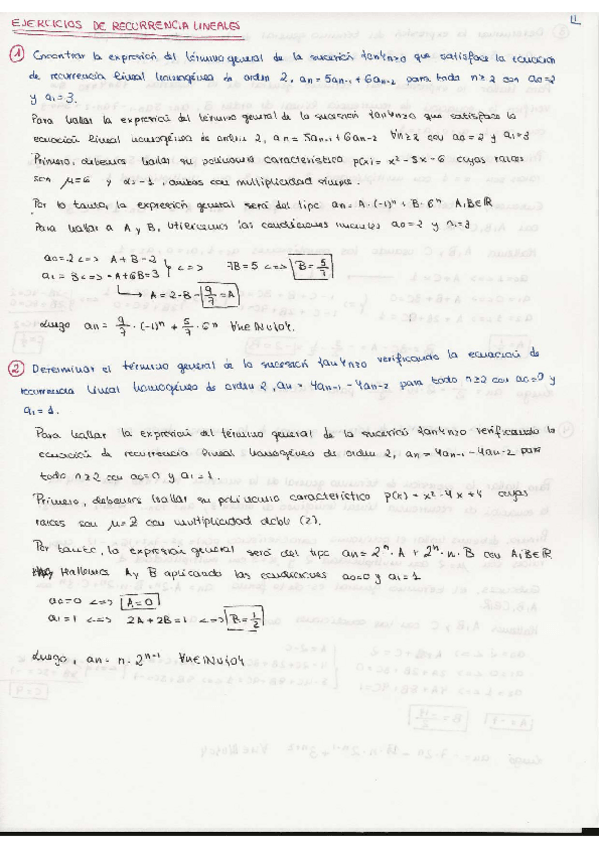 11
EJERCICIOS DE RECURRENCIA LINEALES
① Encontrar la expresión del término general de la sucesión {an}n≥0 que satisface la ecuación
de recurrencia lineal homogénea de orden 2, an = 5an-1 + 6an-2 para todo n≥2 con a0=2
y a1=3.
Para hallar la expresión del término general de la sucesión {an}n≥0 que satisface la
ecuación lineal homogénea de orden 2, an = 5an-1 + 6an-2 ∀n≥2 con a0=2 y a1=3
Primero, debemos hallar su polinomio característico p(x) = x² - 5x - 6 cuyas raíces
son μ=6 y α=-1, ambas con multiplicidad simple.
Por lo tanto, la expresión general será del tipo an = A·(-1)ⁿ + B·6ⁿ A,B∈ℝ
Para hallar a A y B, utilicemos las condiciones iniciales a0=2 y a1=3
a0=2 <=> A+B=2
a1=3 <=> -A+6B=3 } <=> 7B=5 <=> B=5/7
→ A=2-B= 9/7=A
Luego an = 9/7·(-1)ⁿ + 5/7·6ⁿ ∀n∈ℕ∪{0}.
② Determinar el término general de la sucesión {an}n≥0 verificando la ecuación de
recurrencia lineal homogénea de orden 2, an = 4an-1 - 4an-2 para todo n≥2 con a0=0 y
a1=1.
Para hallar la expresión del término general de la sucesión {an}n≥0 verificando la
ecuación de recurrencia lineal homogéneo de orden 2, an = 4an-1 - 4an-2 para
todo n≥2 con a0=0 y a1=1.
Primero, debemos hallar su polinomio característico p(x) = x² - 4x + 4 cuyas
raíces son μ=2 con multiplicidad doble (2).
Por tanto, la expresión general será del tipo an = 2ⁿ·A + 2ⁿ·n·B con A,B∈ℝ
Hallemos A y B aplicando las condiciones a0=0 y a1=1
a0=0 <=> A=0
a1=1 <=> 2A+2B=1 <=> B=1/2
Luego, an = n·2ⁿ⁻¹ ∀n∈ℕ∪{0}